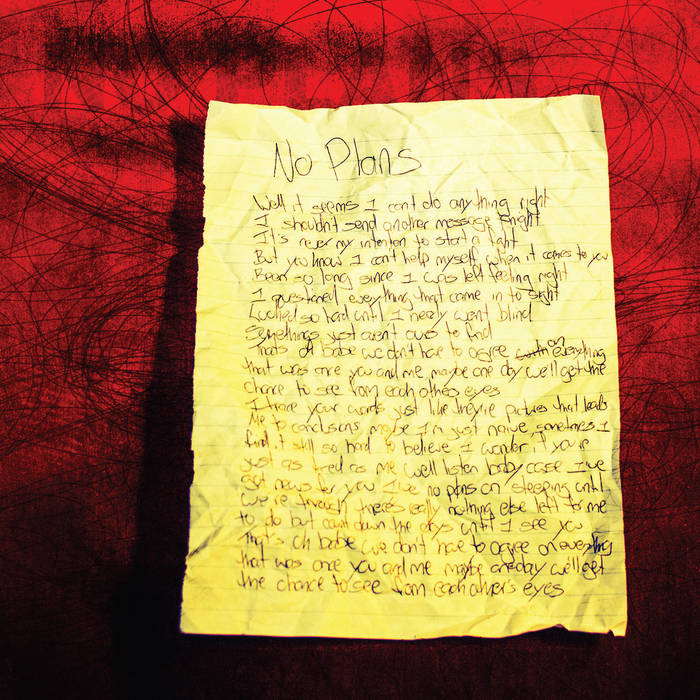 No Plans
Well it seems I can't do any thing right
I shouldn't send another message tonight
It's never my intention to start a fight
But you know I can't help myself when it comes to you
Been so long since I was left feeling right
I questioned everything that came in to sight
Looked so hard until I nearly went blind
Somethings just aren't ours to find
thats oh babe we don't have to agree on everything
that was once you and me maybe one day we'll get the
chance to see from each others eyes
I trace your words just like they're pictures that leads
Me to conclusions maybe I'm just naive sometimes I
find it still so hard to believe I wonder if you're
just as tired as me well listen baby cause I've
got news for you I've no plans on sleeping until
we're through there's really nothing else left to me
to do but count down the days until I see you
that's oh babe we don't have to agree on everything
that was once you and me maybe oneday we'll get
the chance to see from each other's eyes